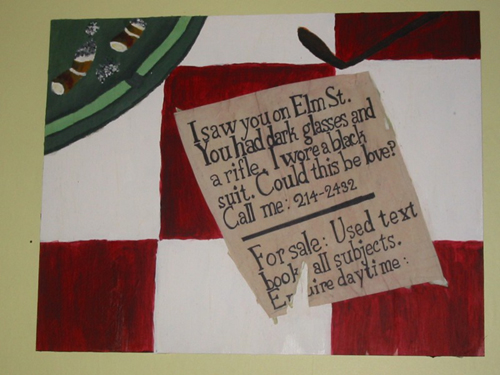 I saw you on Elm St.
You had dark glasses and
a rifle. I wore a black
suit. Could this be love?
Call me: 214-2432
For sale: Used text
book all subjects.
daytime: